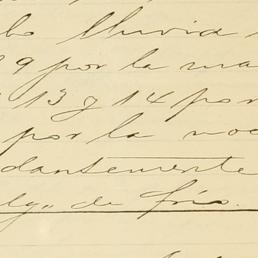 llovido
9 por la ma
13 y 14 por
por la noc
dantemente
de frío.